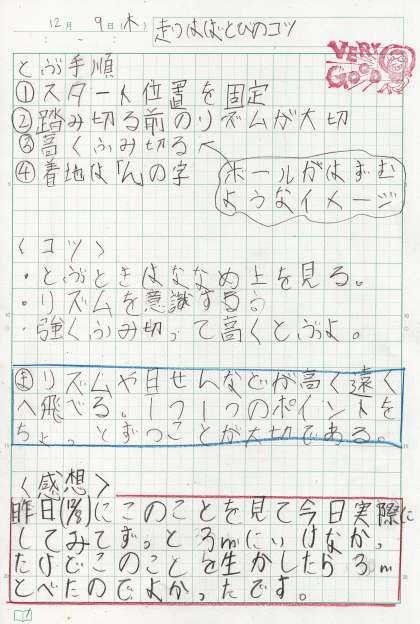 12月 9日(木) 走りはばとびのコツ
VERY GOOD
とぶ手順
①スタート位置を固定
②踏み切る前のリズムが大切
③高くふみ切る
④着地は「ん」の字
ボールがはずむ
ようなイメージ
〈コツ〉
・とぶときはななめ上を見る。
・リズムを意識する。
・強くふみ切って高くとぶよ。
ま リズムや目せんなどが高く遠く
へ飛べる。一つ一つのポイントを
ちょっとずつことが大切である。
〈感想〉
昨日(12/8)にこのことを見て今日実際に
してみてずっと3mにいけなかっ
たけどこのことを生かしたら3m
とべたのでよかったです。